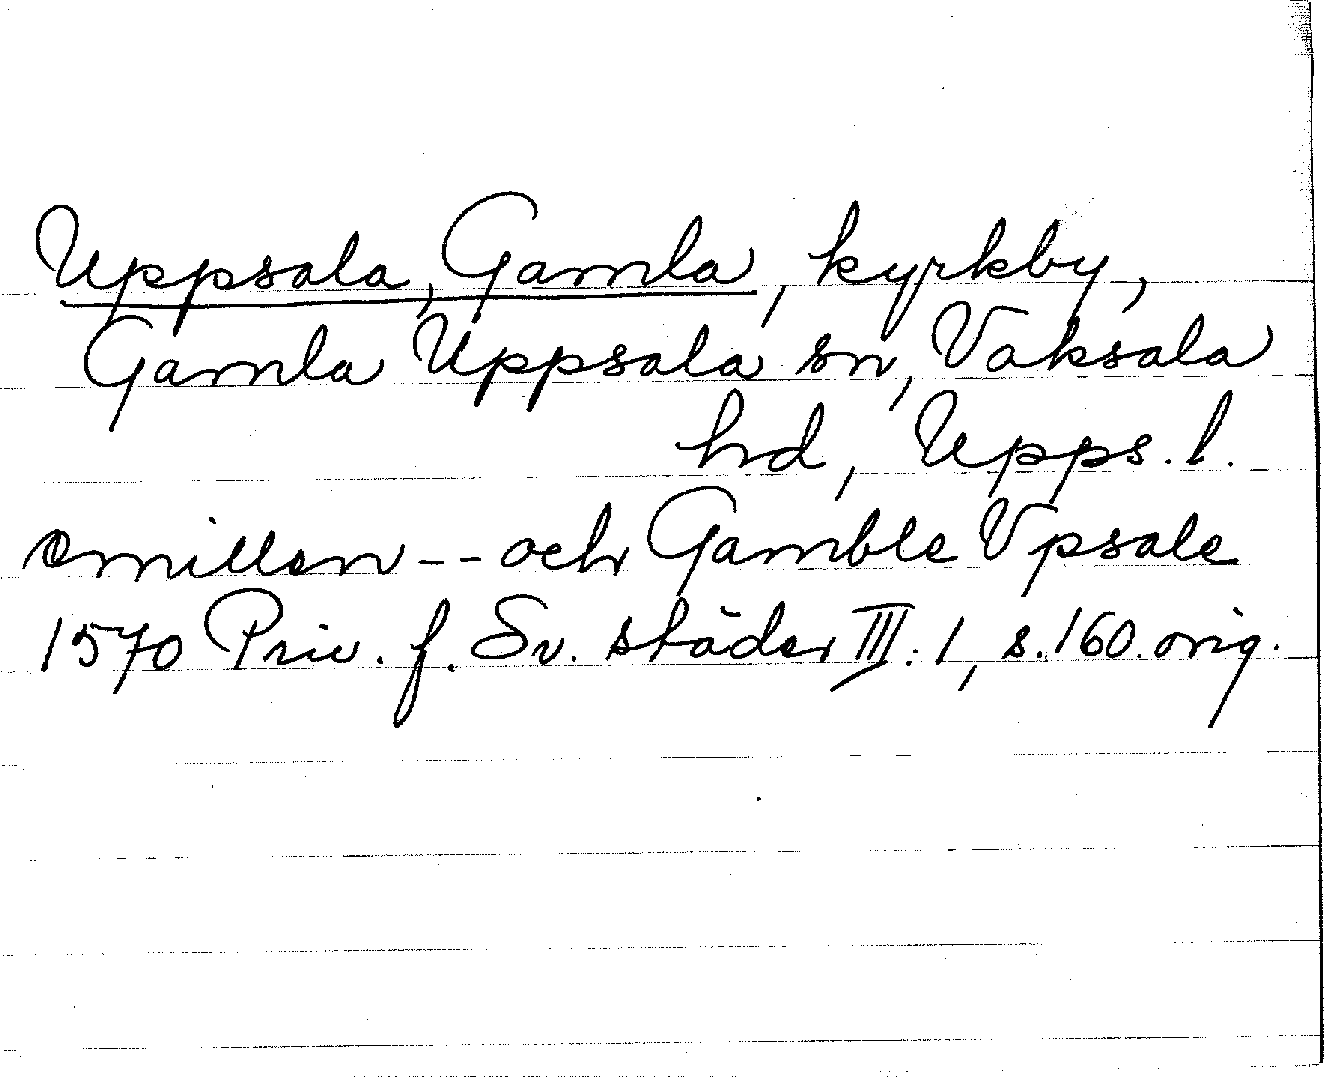 Uppsala, Gamla, kyrkby,
Gamla Uppsala sn, Vaksala
hd, Upps. l.
emillen -- och Gamble Vpsale
1570 Priv. f. Sv. städer III: 1, s. 160. orig.